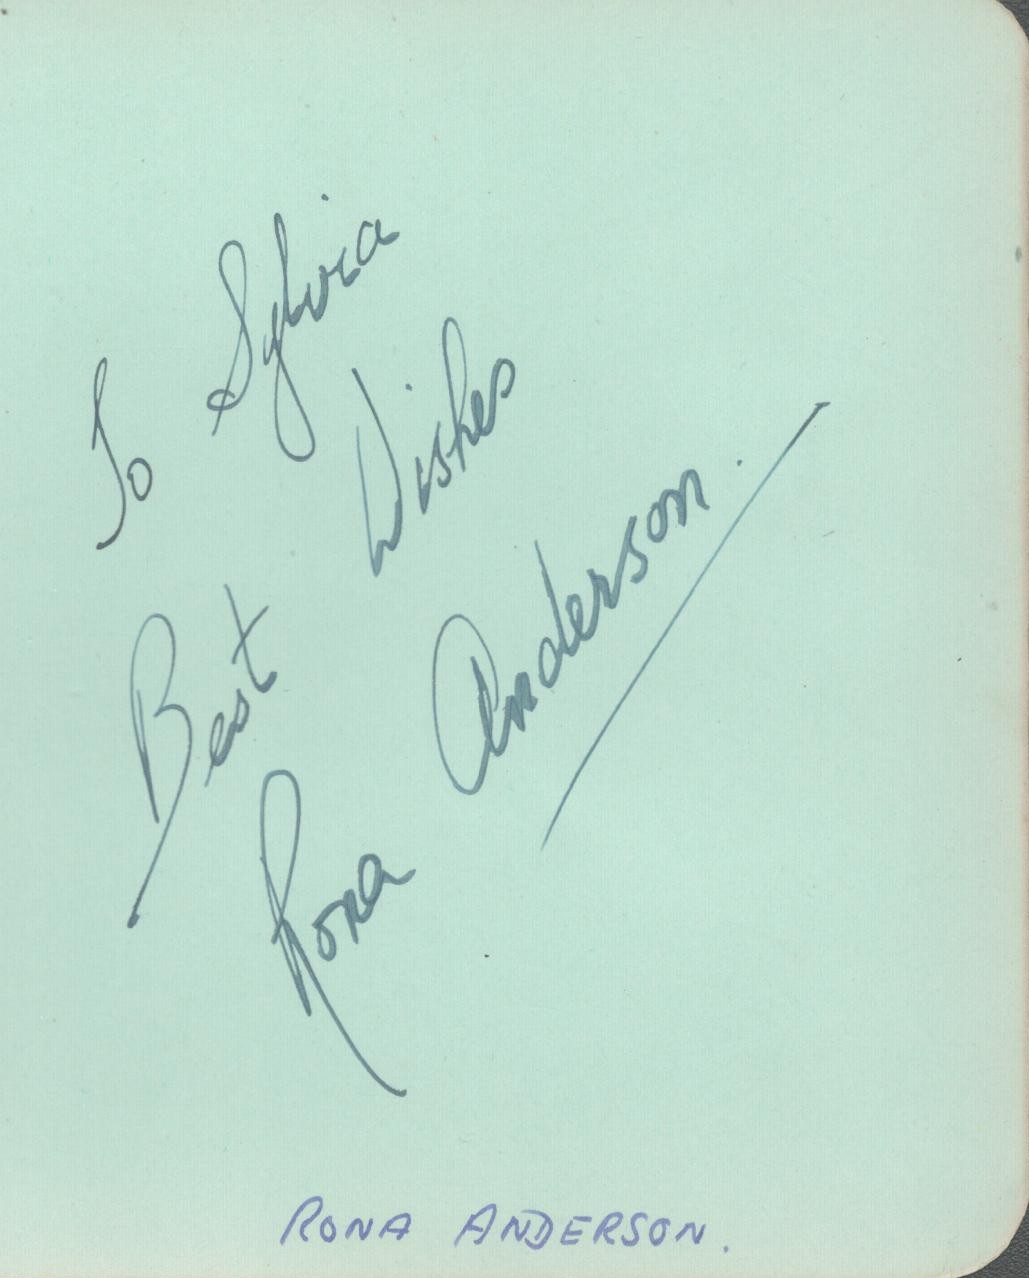 To Sylvia
Best Wishes
Rona Anderson.
RONA ANDERSON.